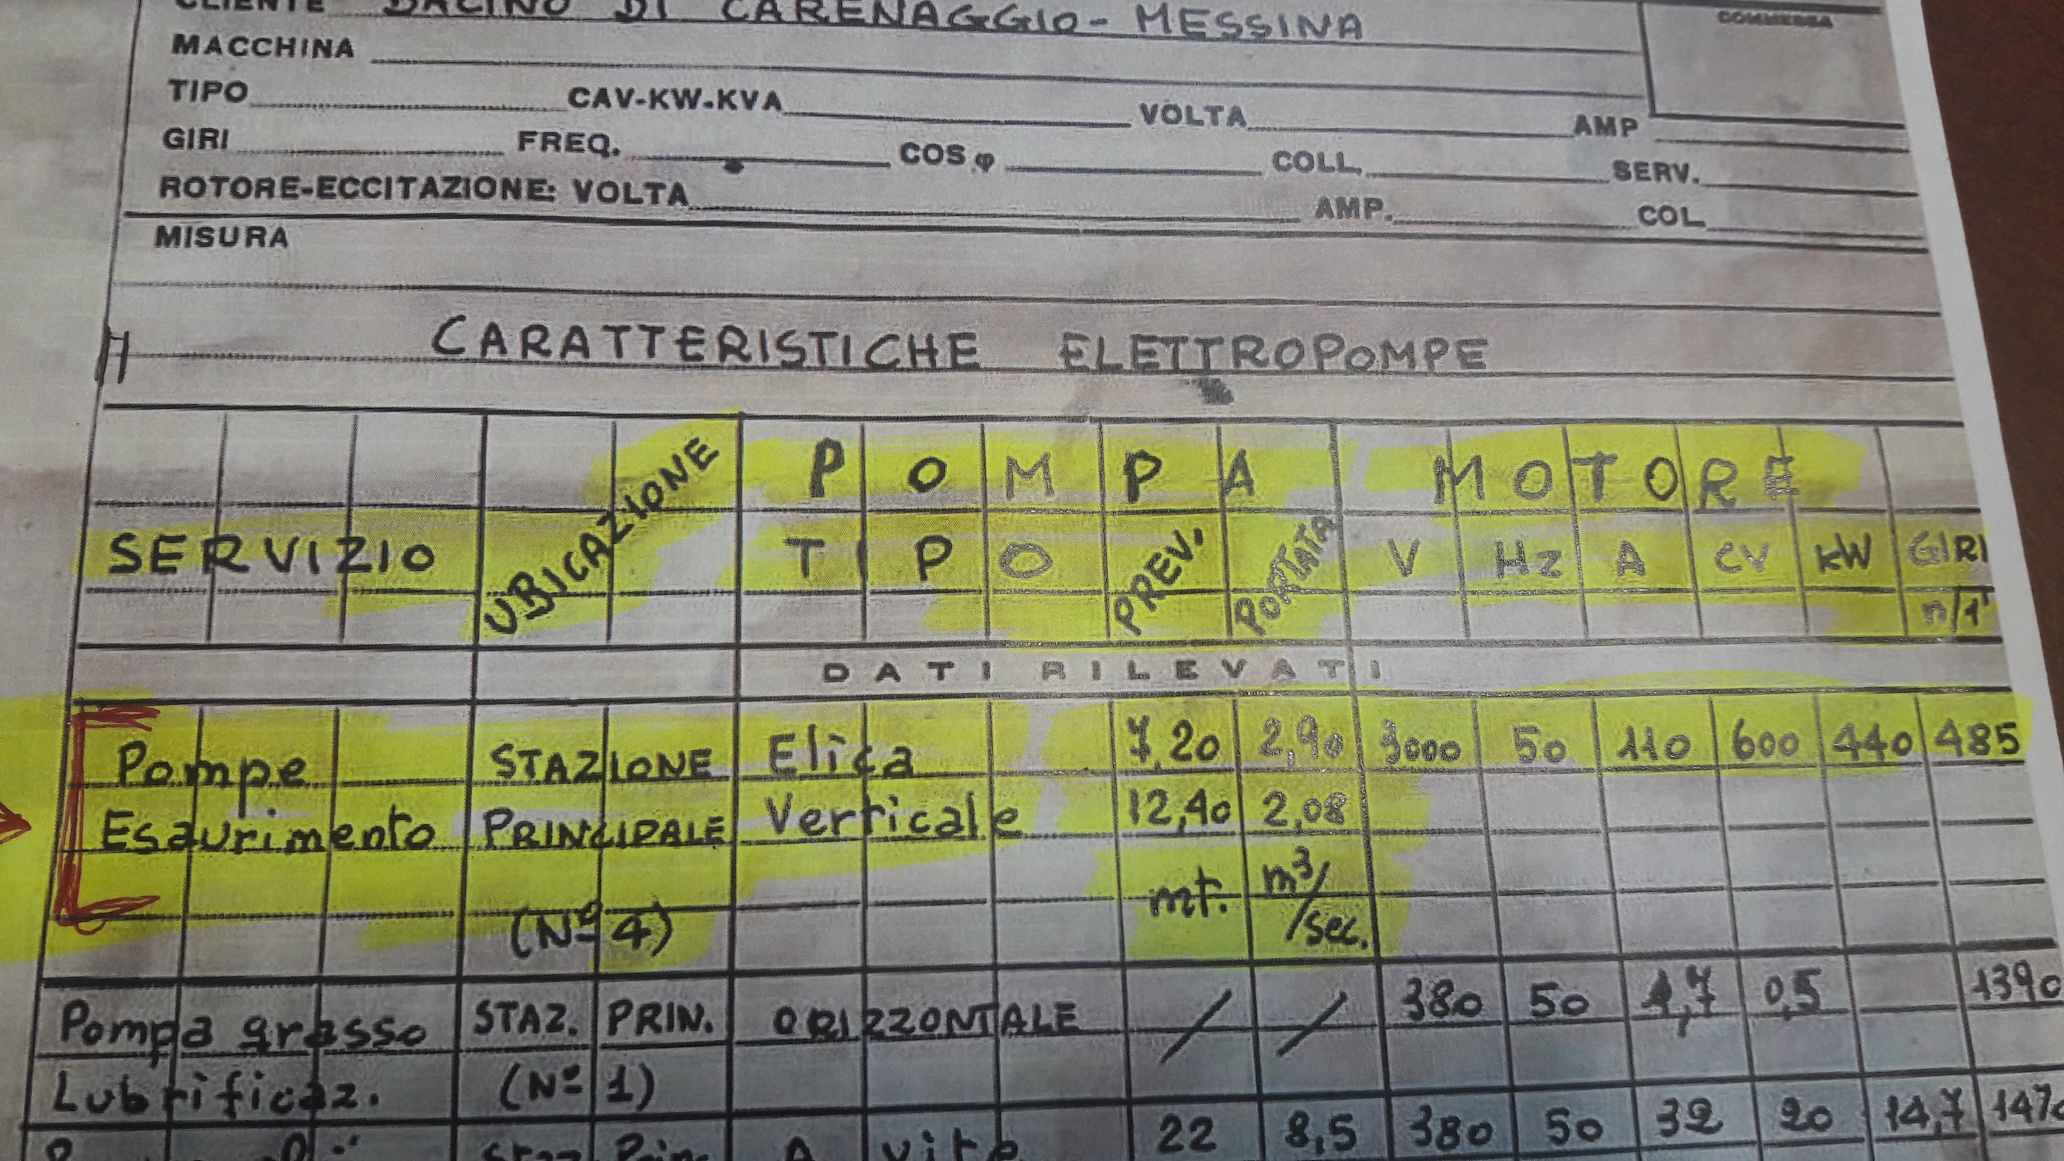 CLIENTE BACINO DI CARENAGGIO - MESSINA
COMMESSA
MACCHINA
TIPO CAV-KW-KVA VOLTA AMP
GIRI FREQ. COS φ COLL. SERV.
ROTORE-ECCITAZIONE: VOLTA AMP. COL.
MISURA
CARATTERISTICHE ELETTROPOMPE
SERVIZIO UBICAZIONE POMPA MOTORE
TIPO PREV. PORTATA V Hz A CV kW GIRI
n/1'
DATI RILEVATI
Pompe STAZIONE Elica 7,20 2,90 3000 50 110 600 440 485
Esaurimento PRINCIPALE Verticale 12,40 2,08
(Nº 4) mt. m³/sec.
Pompa grasso STAZ. PRIN. ORIZZONTALE / / 380 50 1,7 0,5 1390
Lubrificaz. (Nº 1)
Staz. Prin. A vite 22 8,5 380 50 32 20 14,7